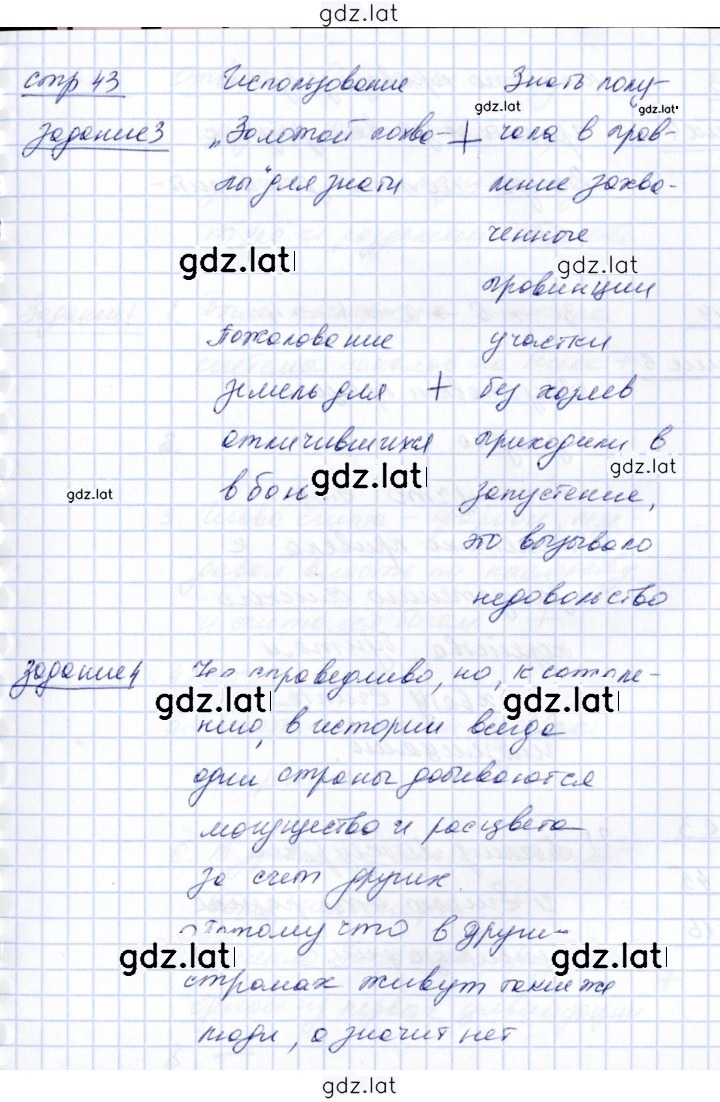 gdz.lat
стр 43 Использование Знать полу-
gdz.lat gdz.lat
задание 3 „Золотой похва- + чала в прав-
лы" для знати ление захва-
ченные
gdz.lat gdz.lat
провинции
Пожалование участки
земель для + без хозяев
отличившихся приходили в
gdz.lat
в бою. запустение,
gdz.lat gdz.lat
это вызывало
недовольство
задание 4 справедливо, но, к сожале-
gdz.lat gdz.lat
нию, в истории всегда
одни страны добиваются
могущества и расцвета
за счет других.
Потому что в других
gdz.lat gdz.lat
странах живут такие же
люди, а значит нет
gdz.lat